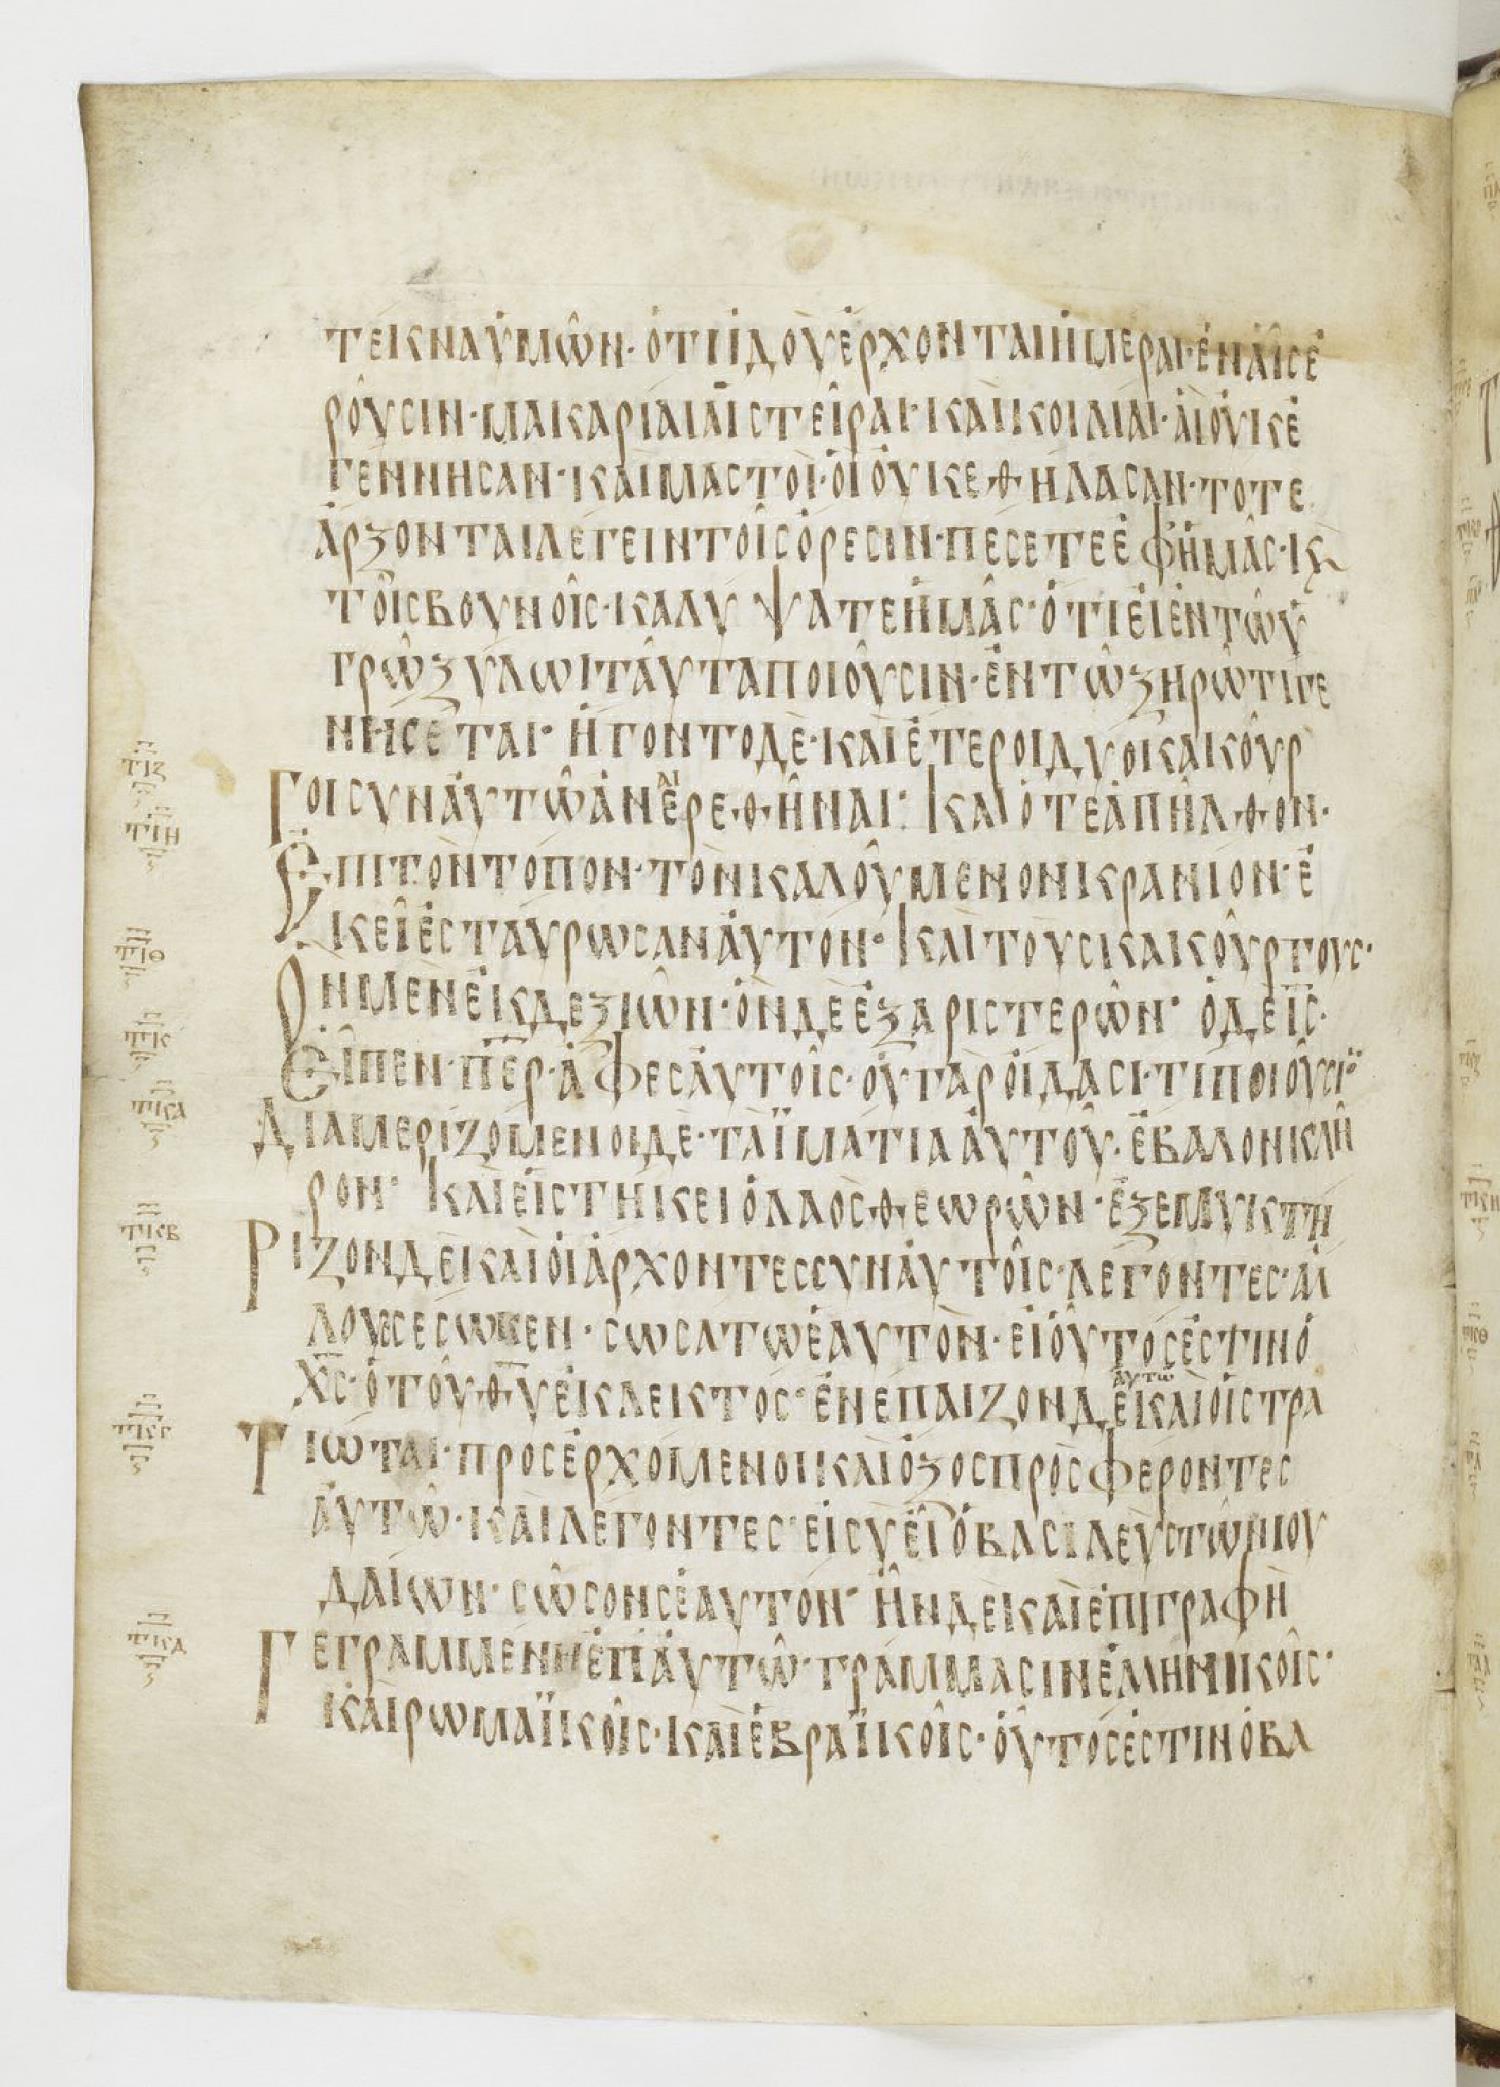 ΤΈΚΝΑ ὙΜΩ͂Ν· ὍΤΙ ἸΔΟῪ ἜΡΧΟΝΤΑΙ ἩΜΈΡΑΙ· ἘΝ ΑἿΣ Ἐ
ΡΟΥ͂ΣΙΝ· ΜΑΚΆΡΙΑΙ ΑἹ ΣΤΕΙ͂ΡΑΙ· ΚΑῚ ΚΟΙΛΊΑΙ· ἋΙ ΟΥ̓Κ Ἐ
ΓΈΝΝΗΣΑΝ· ΚΑῚ ΜΑΣΤΟῚ· ὋΙ ΟΥ̓Κ ἘΘΉΛΑΣΑΝ· ΤΌΤΕ
ἌΡΞΟΝΤΑΙ ΛΈΓΕΙΝ ΤΟΙ͂Σ ὌΡΕΣΙΝ· ΠΈΣΕΤΕ ἘΦ ἩΜΑ͂Σ· Κ̀
ΤΟΙ͂Σ ΒΟΥΝΟΙ͂Σ· ΚΑΛΎΨΑΤΕ ἩΜΑ͂Σ· ὍΤΙ ἘΙ ἘΝ ΤΩ͂ Ὑ
ΓΡΩ͂ ΞΎΛΩΙ ΤΑΥ͂ΤΑ ΠΟΙΟΥ͂ΣΙΝ· ἘΝ ΤΩ͂ ΞΗΡΩ͂ ΤΊ ΓΕ
ΝΉΣΕΤΑΙ· ἬΓΟΝΤΟ ΔῈ· ΚΑῚ ἝΤΕΡΟΙ ΔΎΟ ΚΑΚΟΥ͂Ρ
ΓΟΙ ΣΥΝ ΑΥ̓ΤΩ͂ ἈΝΕΑΙΡΕΘΗ͂ΝΑΙ: ΚΑῚ ὍΤΕ ἈΠΗ͂ΛΘΟΝ·
ἘΠῚ ΤῸΝ ΤΌΠΟΝ· ΤῸΝ ΚΑΛΟΎΜΕΝΟΝ ΚΡΑΝΊΟΝ· Ἐ
ΚΕΙ͂ ἘΣΤΑΎΡΩΣΑΝ ΑΥ̓ΤΟΝ· ΚΑῚ ΤΟΥΣ ΚΑΚΟΎΡΓΟΥΣ·
ὋΝ ΜῈΝ ἘΚ ΔΕΞΙΩ͂Ν· ὋΝ ΔῈ ἘΞ ἈΡΙΣΤΕΡΩ͂Ν· Ὁ ΔῈ ΙΣ·
ΕἾΠΕΝ· ΠΕΡ· ἌΦΕΣ ΑΥ̓ΤΟΙ͂Σ· ΟΥ̓ ΓᾺΡ ΟἼΔΑΣΙ· ΤΊ ΠΟΙΟΥ͂ΣΙ·
ΔΙΑΜΕΡΙΖΌΜΕΝΟΙ ΔΕ· ΤᾺ ἹΜΆΤΙΑ ΑΥ̓ΤΟΥ͂· ἜΒΑΛΟΝ ΚΛΗ͂
ΡΟΝ· ΚΑῚ ΕἹΣΤΉΚΕΙ Ὁ ΛΑΌΣ ΘΕΩΡΩ͂Ν· ἘΞΕΜΥΚΤΉ
ΡΙΖΟΝ ΔῈ ΚΑῚ ΟἹ ἌΡΧΟΝΤΕΣ ΣΥΝ ΑΥ̓ΤΟΙ͂Σ· ΛΈΓΟΝΤΕΣ· ἌΛ
ΛΟΥΣ ἜΣΩΣΕΝ· ΣΩΣΑΤΩ ἙΑΥΤῸΝ· ΕἸ ΟὟΤΌΣ ἘΣΤΙΝ Ὁ
ΧΣ· Ὁ ΤΟΥ͂ ΘΥ ἘΚΛΕΚΤΌΣ· ἘΝΈΠΑΙΖΟΝ ΔῈ ΑΥΤΩ ΚΑῚ ΟἹ ΣΤΡΑ
ΤΙΩ͂ΤΑΙ· ΠΡΟΣΕΡΧΌΜΕΝΟΙ ΚΑῚ ὌΞΟΣ ΠΡΟΣΦΈΡΟΝΤΕΣ
ΑΥ̓ΤΩ͂· ΚΑῚ ΛΈΓΟΝΤΕΣ· ΕἸ ΣῪ ΕἾ Ὁ ΒΑΣΙΛΕῪΣ ΤΩ͂Ν ΙΟΥ
ΔΑΊΩΝ· ΣΩ͂ΣΟΝ ΣΕΑΥΤΟΝ· ἮΝ ΔῈ ΚΑῚ ἘΠΙΓΡΑΦῊ
ΓΕΓΡΑΜΜΈΝΗ ἘΠ ΑΥ̓ΤΩ͂· ΓΡΆΜΜΑΣΙΝ ἘΛΛΗΝΙΚΟΙ͂Σ·
ΚΑῚ ΡΩΜΑΪΚΟΙ͂Σ· ΚΑῚ ἙΒΡΑΪΚΟΙ͂Σ· ΟὟΤΌΣ ἘΣΤΙΝ Ὁ ΒΑ
ΤΙΖ
ΤΙΗ
ΤΙΘ
ΤΚ
ΤΚΑ
ΤΚΒ
ΤΚΓ
ΤΚΔ